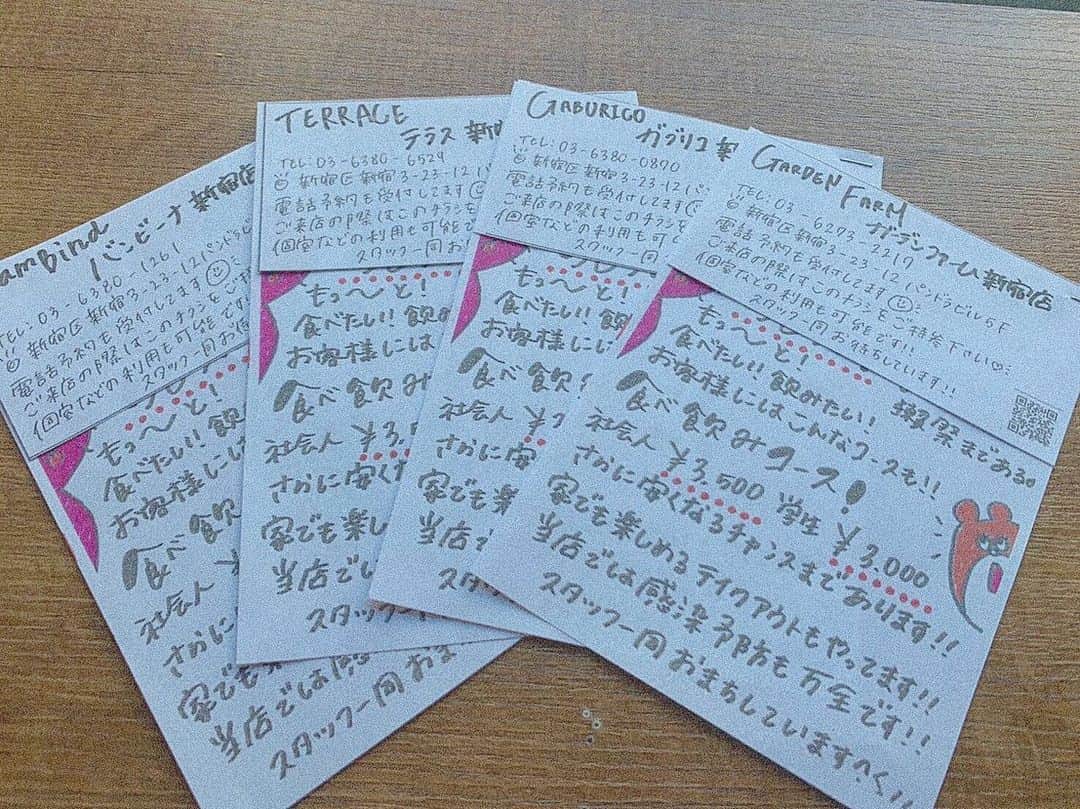 ambina
バンビーナ 新宿店
TEL: 03-6380-1261
新宿区新宿3-23-12パンドラビル
電話予約も受付してます
ご来店の際はこのチラシをご
個室などの利用も可能です
スタッフ一同お
もっ〜と!
食べたい!飲
お客様にはこ
食べ飲
社会人 ¥
さかに安く
家でも楽
当店では感
スタッフ一同おま
TERRACE
テラス 新宿
TEL: 03-6380-6529
新宿区新宿3-23-12パ
電話予約も受付してます
ご来店の際はこのチラシを
個室などの利用も可能で
スタッフ一同お
もっ〜と!
食べたい!飲
お客様には
食べ飲
社会人 ¥3,5
さかに安くな
家でも楽し
当店では
スタッ
GABURICO
ガブリコ 新
TEL: 03-6380-0890
新宿区新宿3-23-12パ
電話予約も受付してます
ご来店の際はこのチラシ
個室などの利用も可
スタッフ一同
もっ〜と!
食べたい!飲
お客様にはこ
食べ飲
社会人 ¥
さかに安
家でも楽
当店で
スタッ
GARDEN FARM
ガーデンファーム 新宿店
TEL: 03-6203-2217
新宿区新宿3-23-12 パンドラビル5F
電話予約も受付してます
ご来店の際はこのチラシをご持参下さい
個室などの利用も可能です!!
スタッフ一同お待ちしています!!
もっ〜と!
食べたい!飲みたい!
お客様にはこんなコースも!!
食べ飲みコース!
社会人 ¥3,500 学生 ¥3,000
さかに安くなるチャンスまであります!!
家でも楽しめるテイクアウトもやってます!!
当店では感染予防も万全です!!
スタッフ一同おまちしています